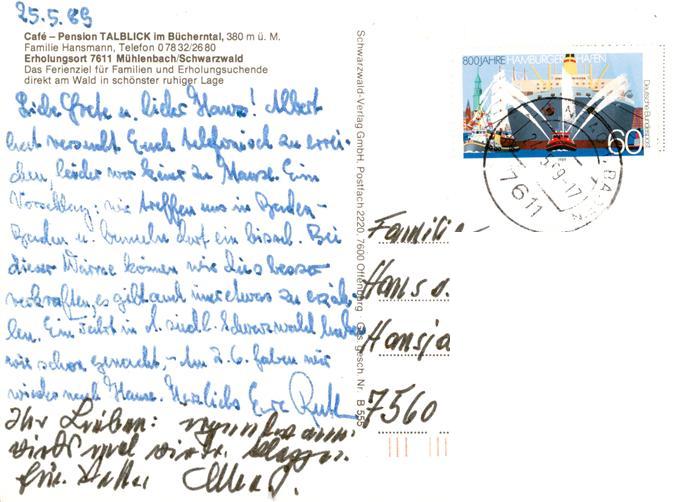 25.5.89
Café – Pension TALBLICK im Bücherntal, 380 m ü. M.
Familie Hansmann, Telefon 0 78 32/26 80
Erholungsort 7611 Mühlenbach/Schwarzwald
Das Ferienziel für Familien und Erholungsuchende
direkt am Wald in schönster ruhiger Lage
Liebe Grete u. lieber Hans! Albert
hat versucht Euch telefonisch zu errei-
chen, leider war keiner zu Hause. Ein
Vorschlag: wir treffen uns in Baden-
Baden u. bummeln dort ein bissch. Bei
dieser Wärme können wir dies besser
verkraften, es gibt auch immer etwas zu erzäh-
len. Ein Fahrt in d. südl. Schwarzwald haben
wir schon gemacht,- Am 2.6. fahren wir
wieder nach Hause. Herzlichst Eure Ruth
Ihr Lieben:
wird mal wieder klappen.
Schwarzwald-Verlag GmbH, Postfach 2220, 7600 Offenburg Ges. gesch. Nr. B 555
800 JAHRE HAMBURGER HAFEN
Deutsche Bundespost
60
7611
Famili
Hans u.
Hansja
7560